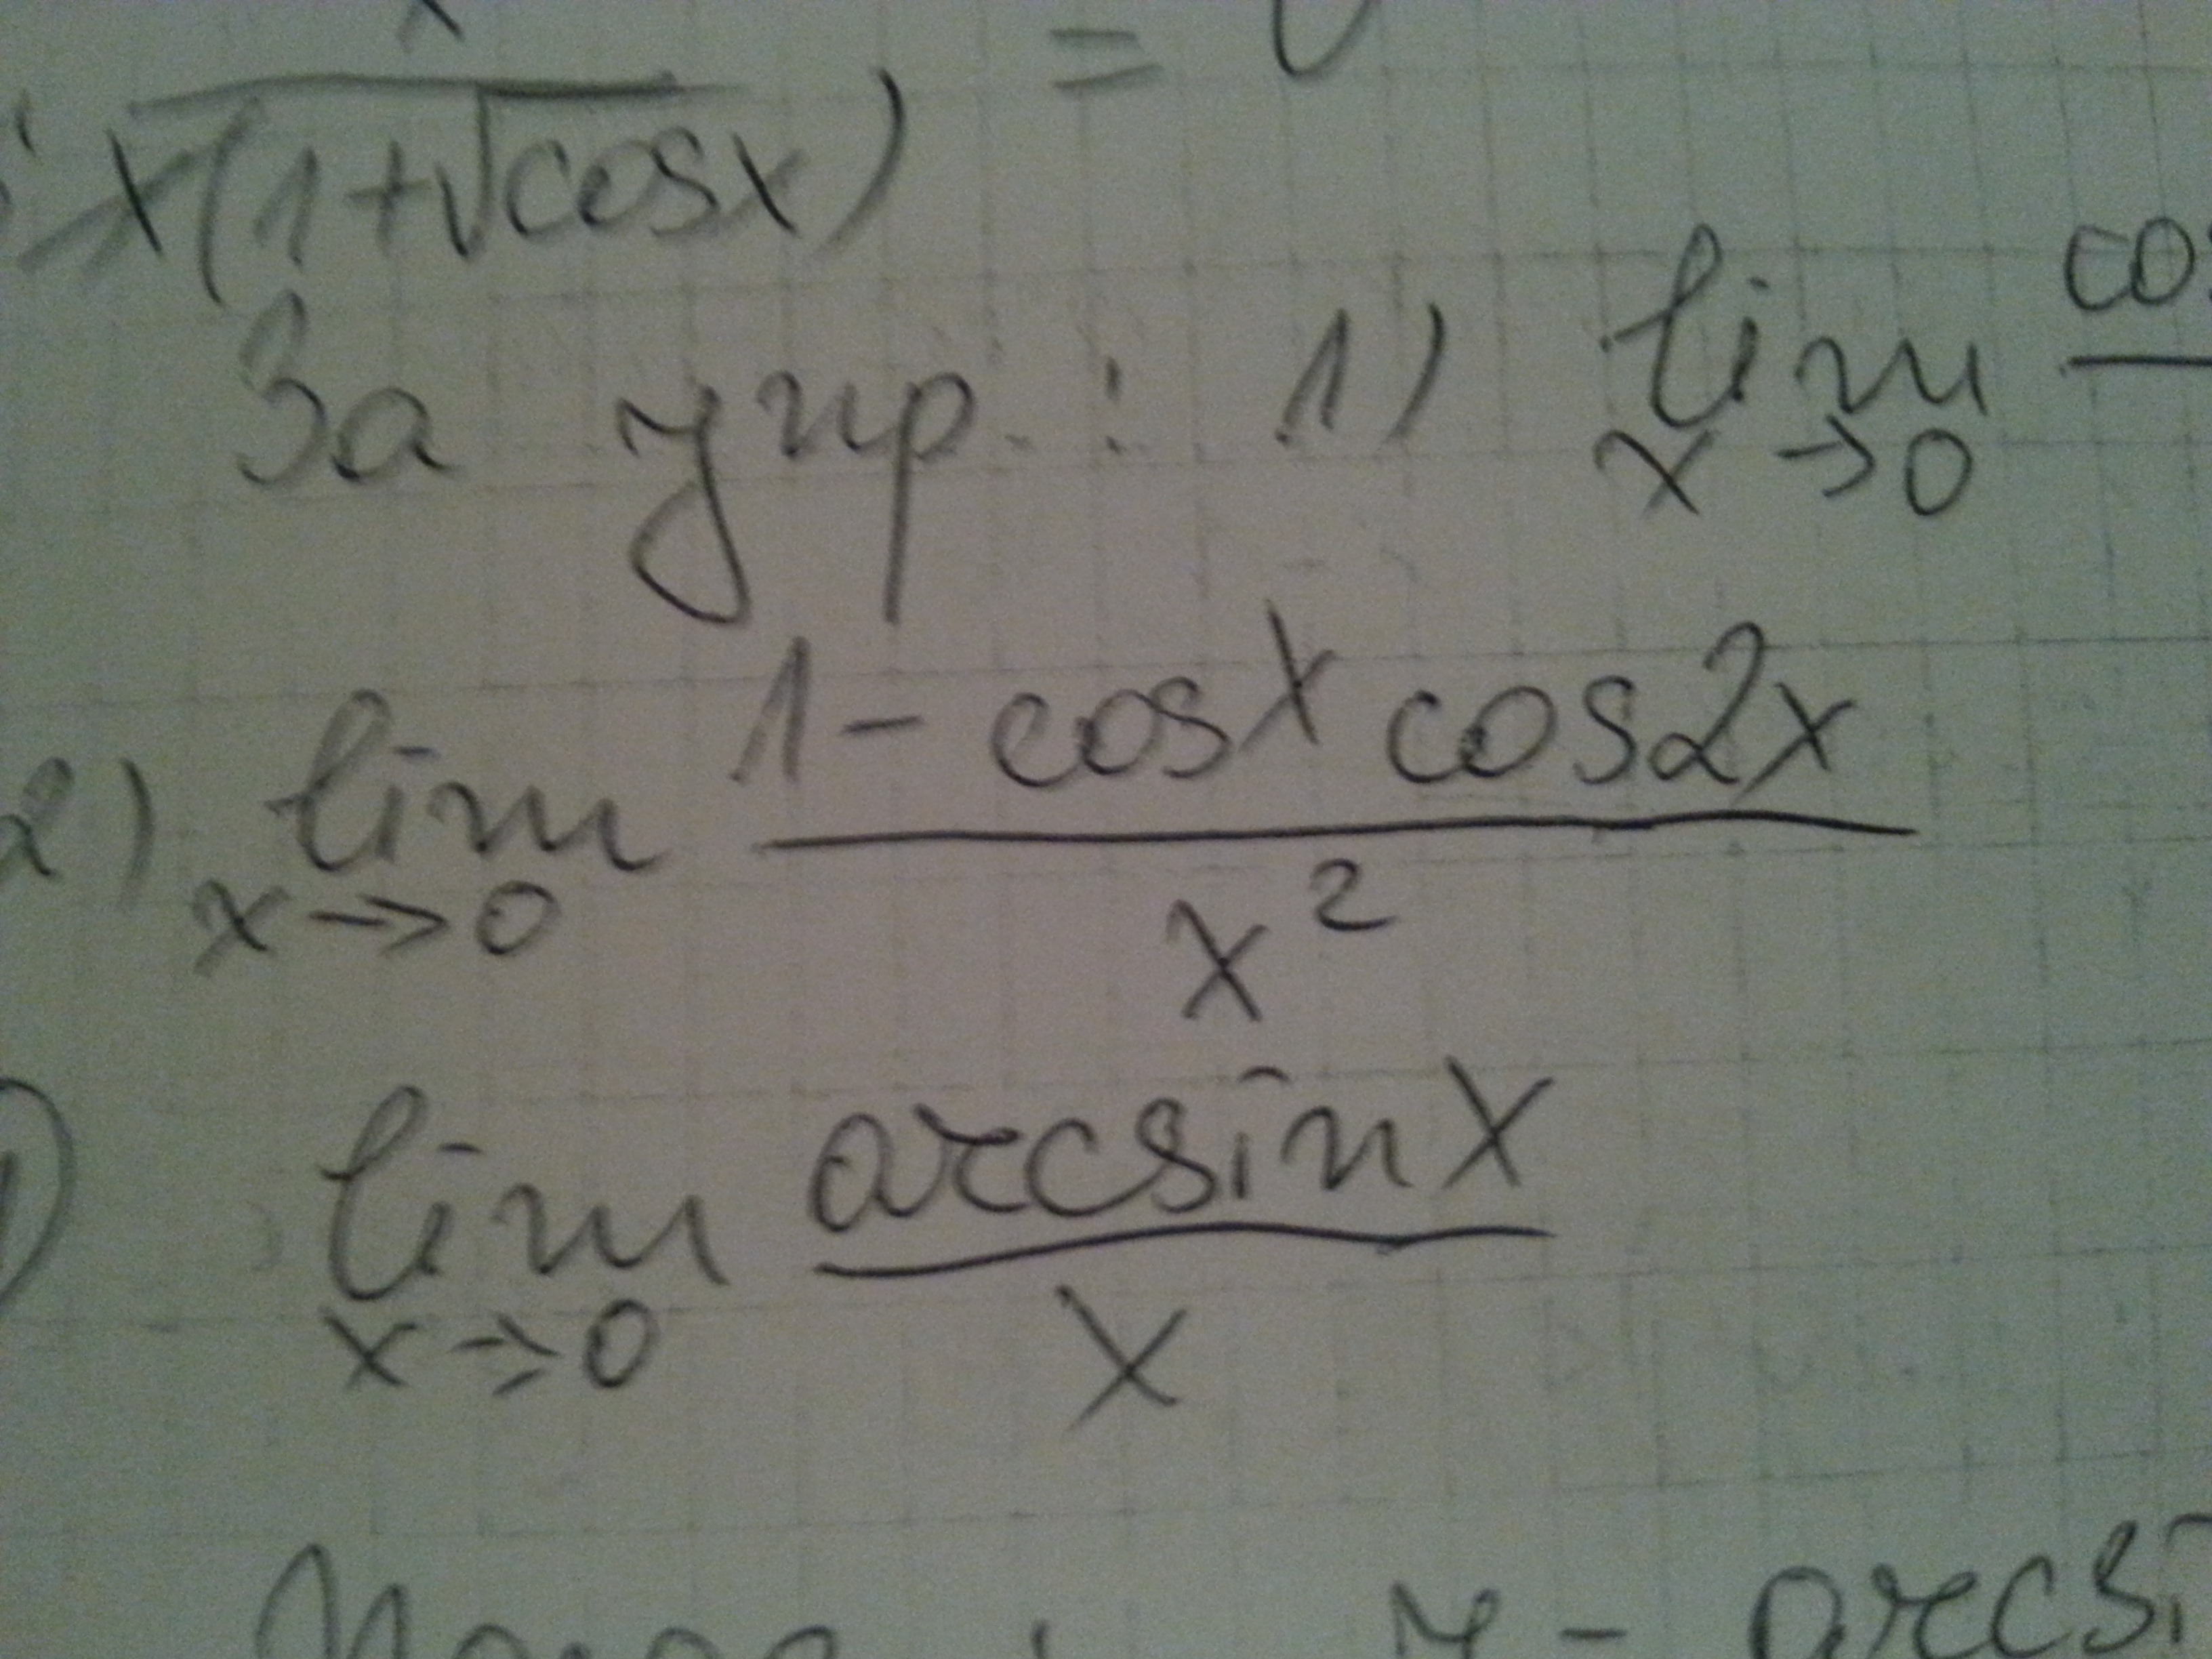 x(1+√cosx) = 0
За упр. : 1) lim x→0 cos
2) lim x→0 (1 - cosx cos2x) / x²
lim x→0 arcsinx / x
arcsi